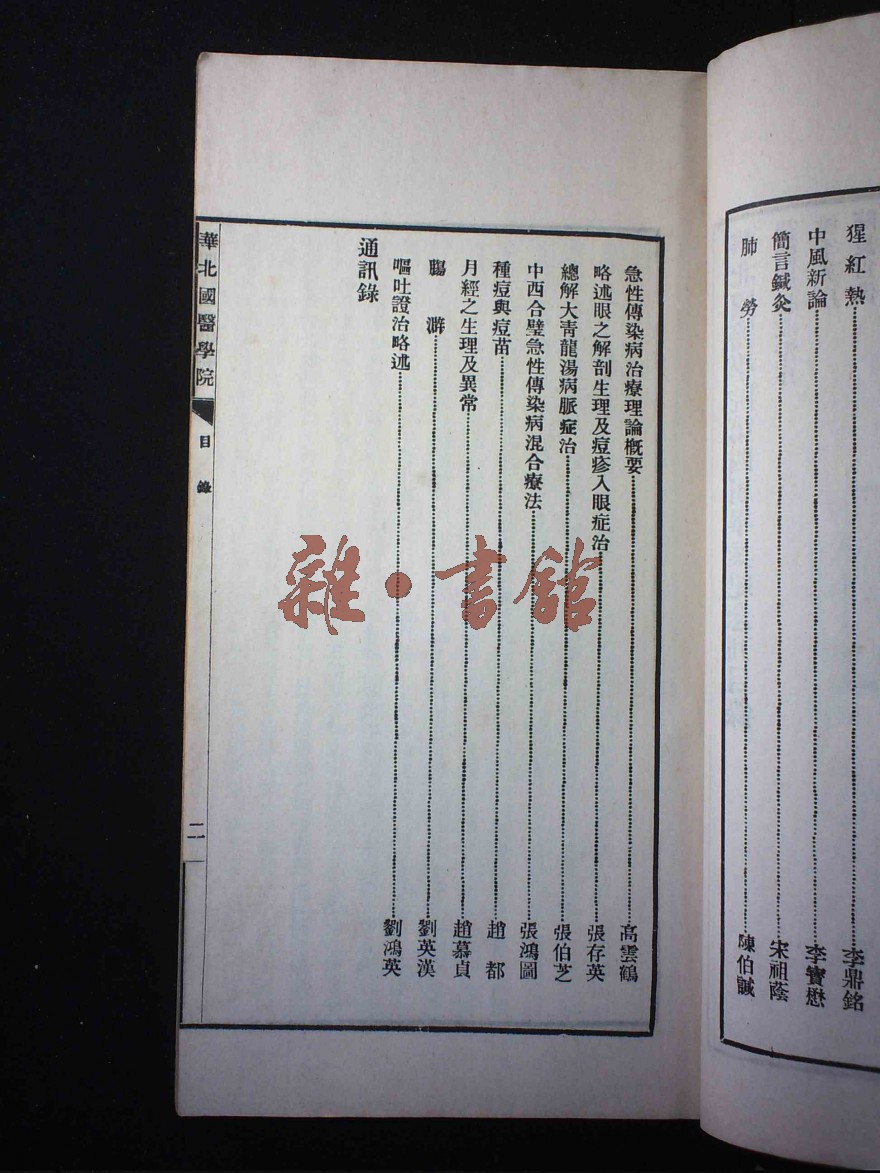 猩紅熱 李鼎銘
中風新論 李寶懋
簡言鍼灸 宋祖蔭
肺勞 陳伯誠
急性傳染病治療理論概要 高雲鶴
略述眼之解剖生理及痘疹入眼症治 張存英
總解大青龍湯病脈症治 張伯芝
中西合璧急性傳染病混合療法 張鴻圖
種痘與痘苗 趙都
月經之生理及異常 趙慕貞
腸澼 劉英漢
嘔吐證治略述 劉鴻英
通訊錄
華北國醫學院 目錄 二
雜·書館